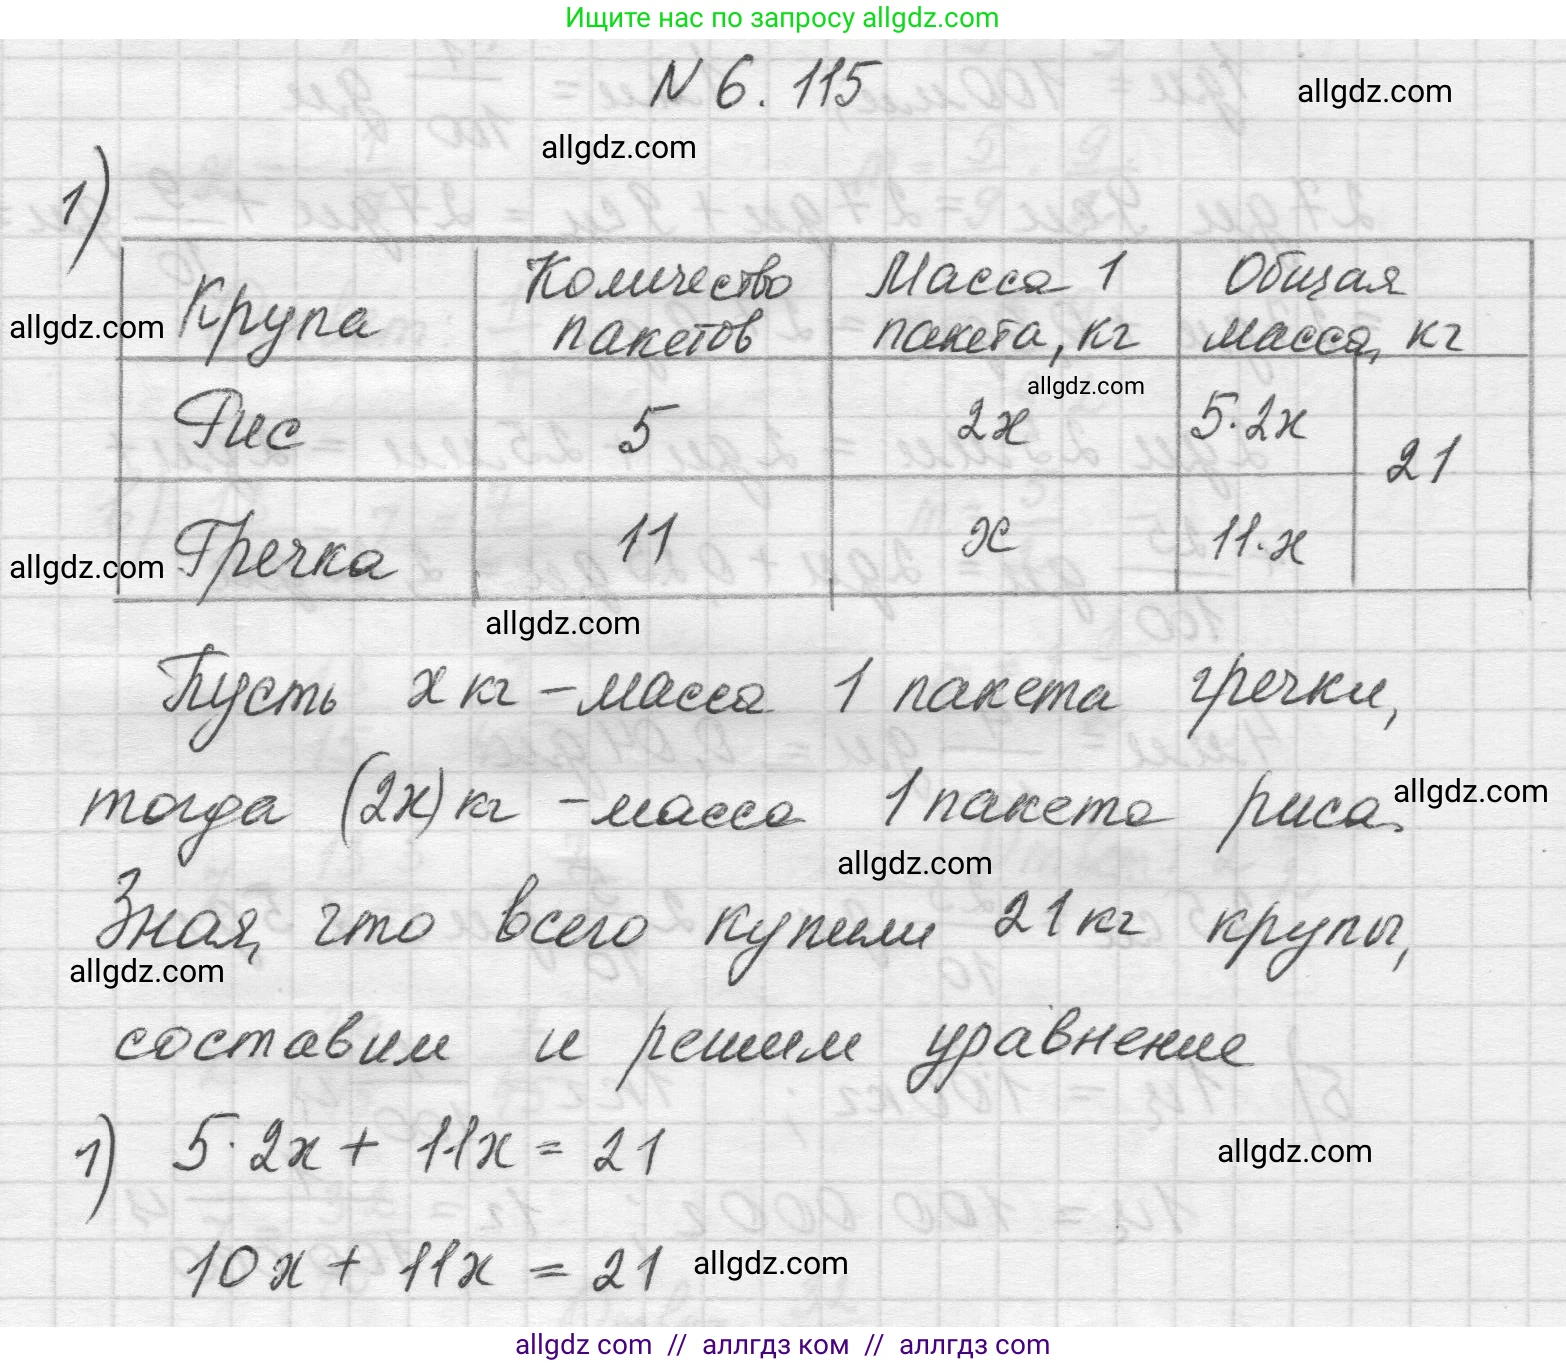 Ищите нас по запросу allgdz.com
N 6.115
allgdz.com
allgdz.com
1)
Крупа
Количество пакетов
Масса 1 пакета, кг
Общая масса, кг
allgdz.com
allgdz.com
Рис 5 2x 5·2x
21
Гречка 11 x 11·x
allgdz.com
allgdz.com
Пусть x кг – масса 1 пакета гречки,
тогда (2x) кг – масса 1 пакета риса.
allgdz.com
allgdz.com
Зная, что всего купили 21 кг крупы,
allgdz.com
составим и решим уравнение
1) 5·2x + 11x = 21
allgdz.com
10x + 11x = 21
allgdz.com
allgdz com // аллгдз ком // аллгдз com